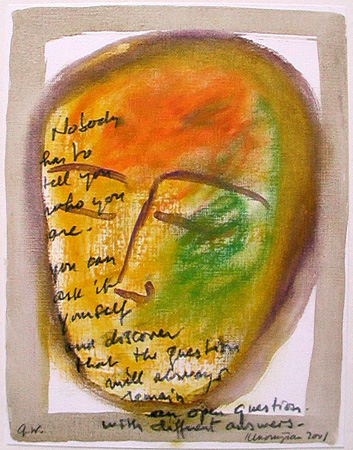 Nobody
has to
tell you
who you
are -
you can
ask it
yourself
and discover
that the question
will always
remain
an open question.
with different answers -
G.W.
2001